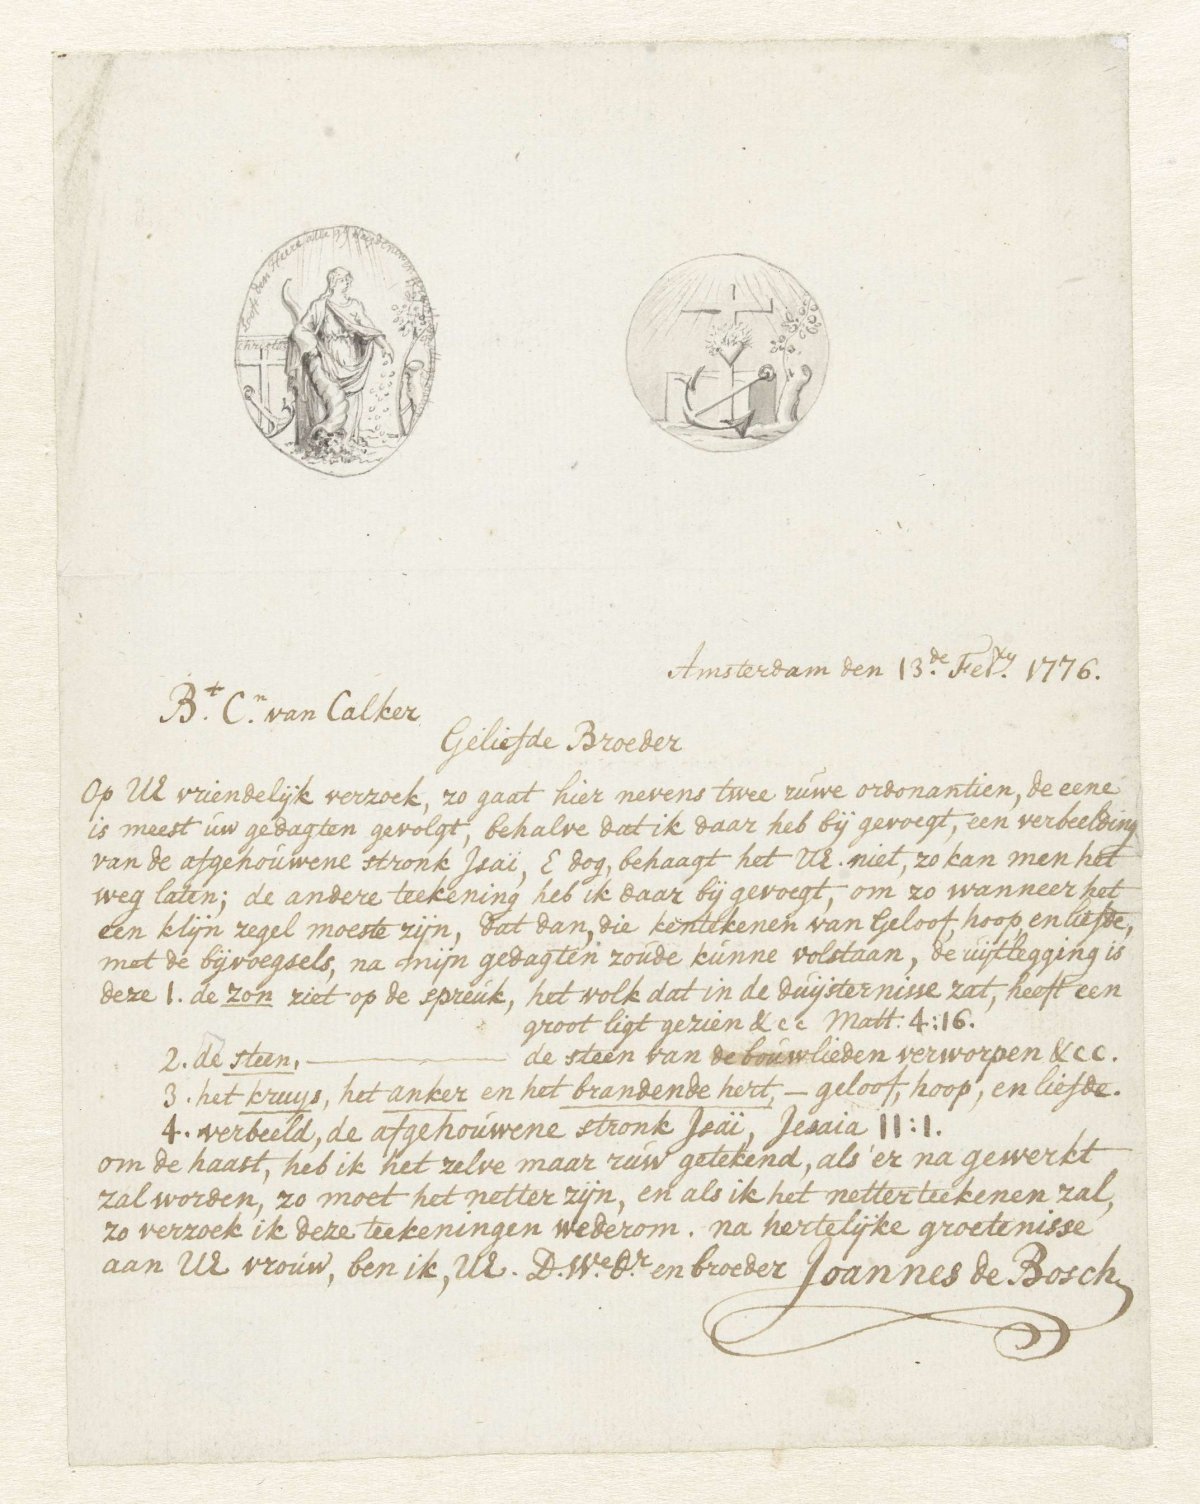 Looft den Heere alle gy Heydenen
Christus
Amsterdam den 13.de Febry. 1776.
Bt. Cn. van Calker
Geliefde Broeder
Op UE vriendelijk verzoek, zo gaat hier nevens twee rúwe ordonantien, de eene
is meest úw gedagten gevolgt, behalve dat ik daar heb bij gevoegt, een verbeelding
van de afgehoúwene stronk Jsaï, & dog, behaagt het UE. niet, zo kan men het
weg laten; de andere teekening heb ik daar bij gevoegt, om zo wanneer het
een klijn zegel moeste zijn, dat dan, die kentekenen van Geloof, hoop, en liefde,
met de bijvoegsels, na mijn gedagten zoúde kúnne volstaan, de uijtlegging is
deze 1. de zon ziet op de spreúk, het volk dat in de dúijsternisse zat, heeft een
groot ligt gezien &cc Matt: 4:16.
2. de steen, — de steen van de boúwlieden verworpen &cc.
3. het kruys, het anker en het brandende hert, — geloof, hoop, en liefde.
4. verbeeld, de afgehoúwene stronk Jsaï, Jesaia 11:1.
om de haast, heb ik het zelve maar rúw getekend, als 'er na gewerkt
zal worden, zo moet het netter zijn, en als ik het netter teekenen zal,
zo verzoek ik deze teekeningen wederom. na hertelijke groetenisse
aan UE vroúw, ben ik, UE. D.We.Dr. en broeder Joannes de Bosch